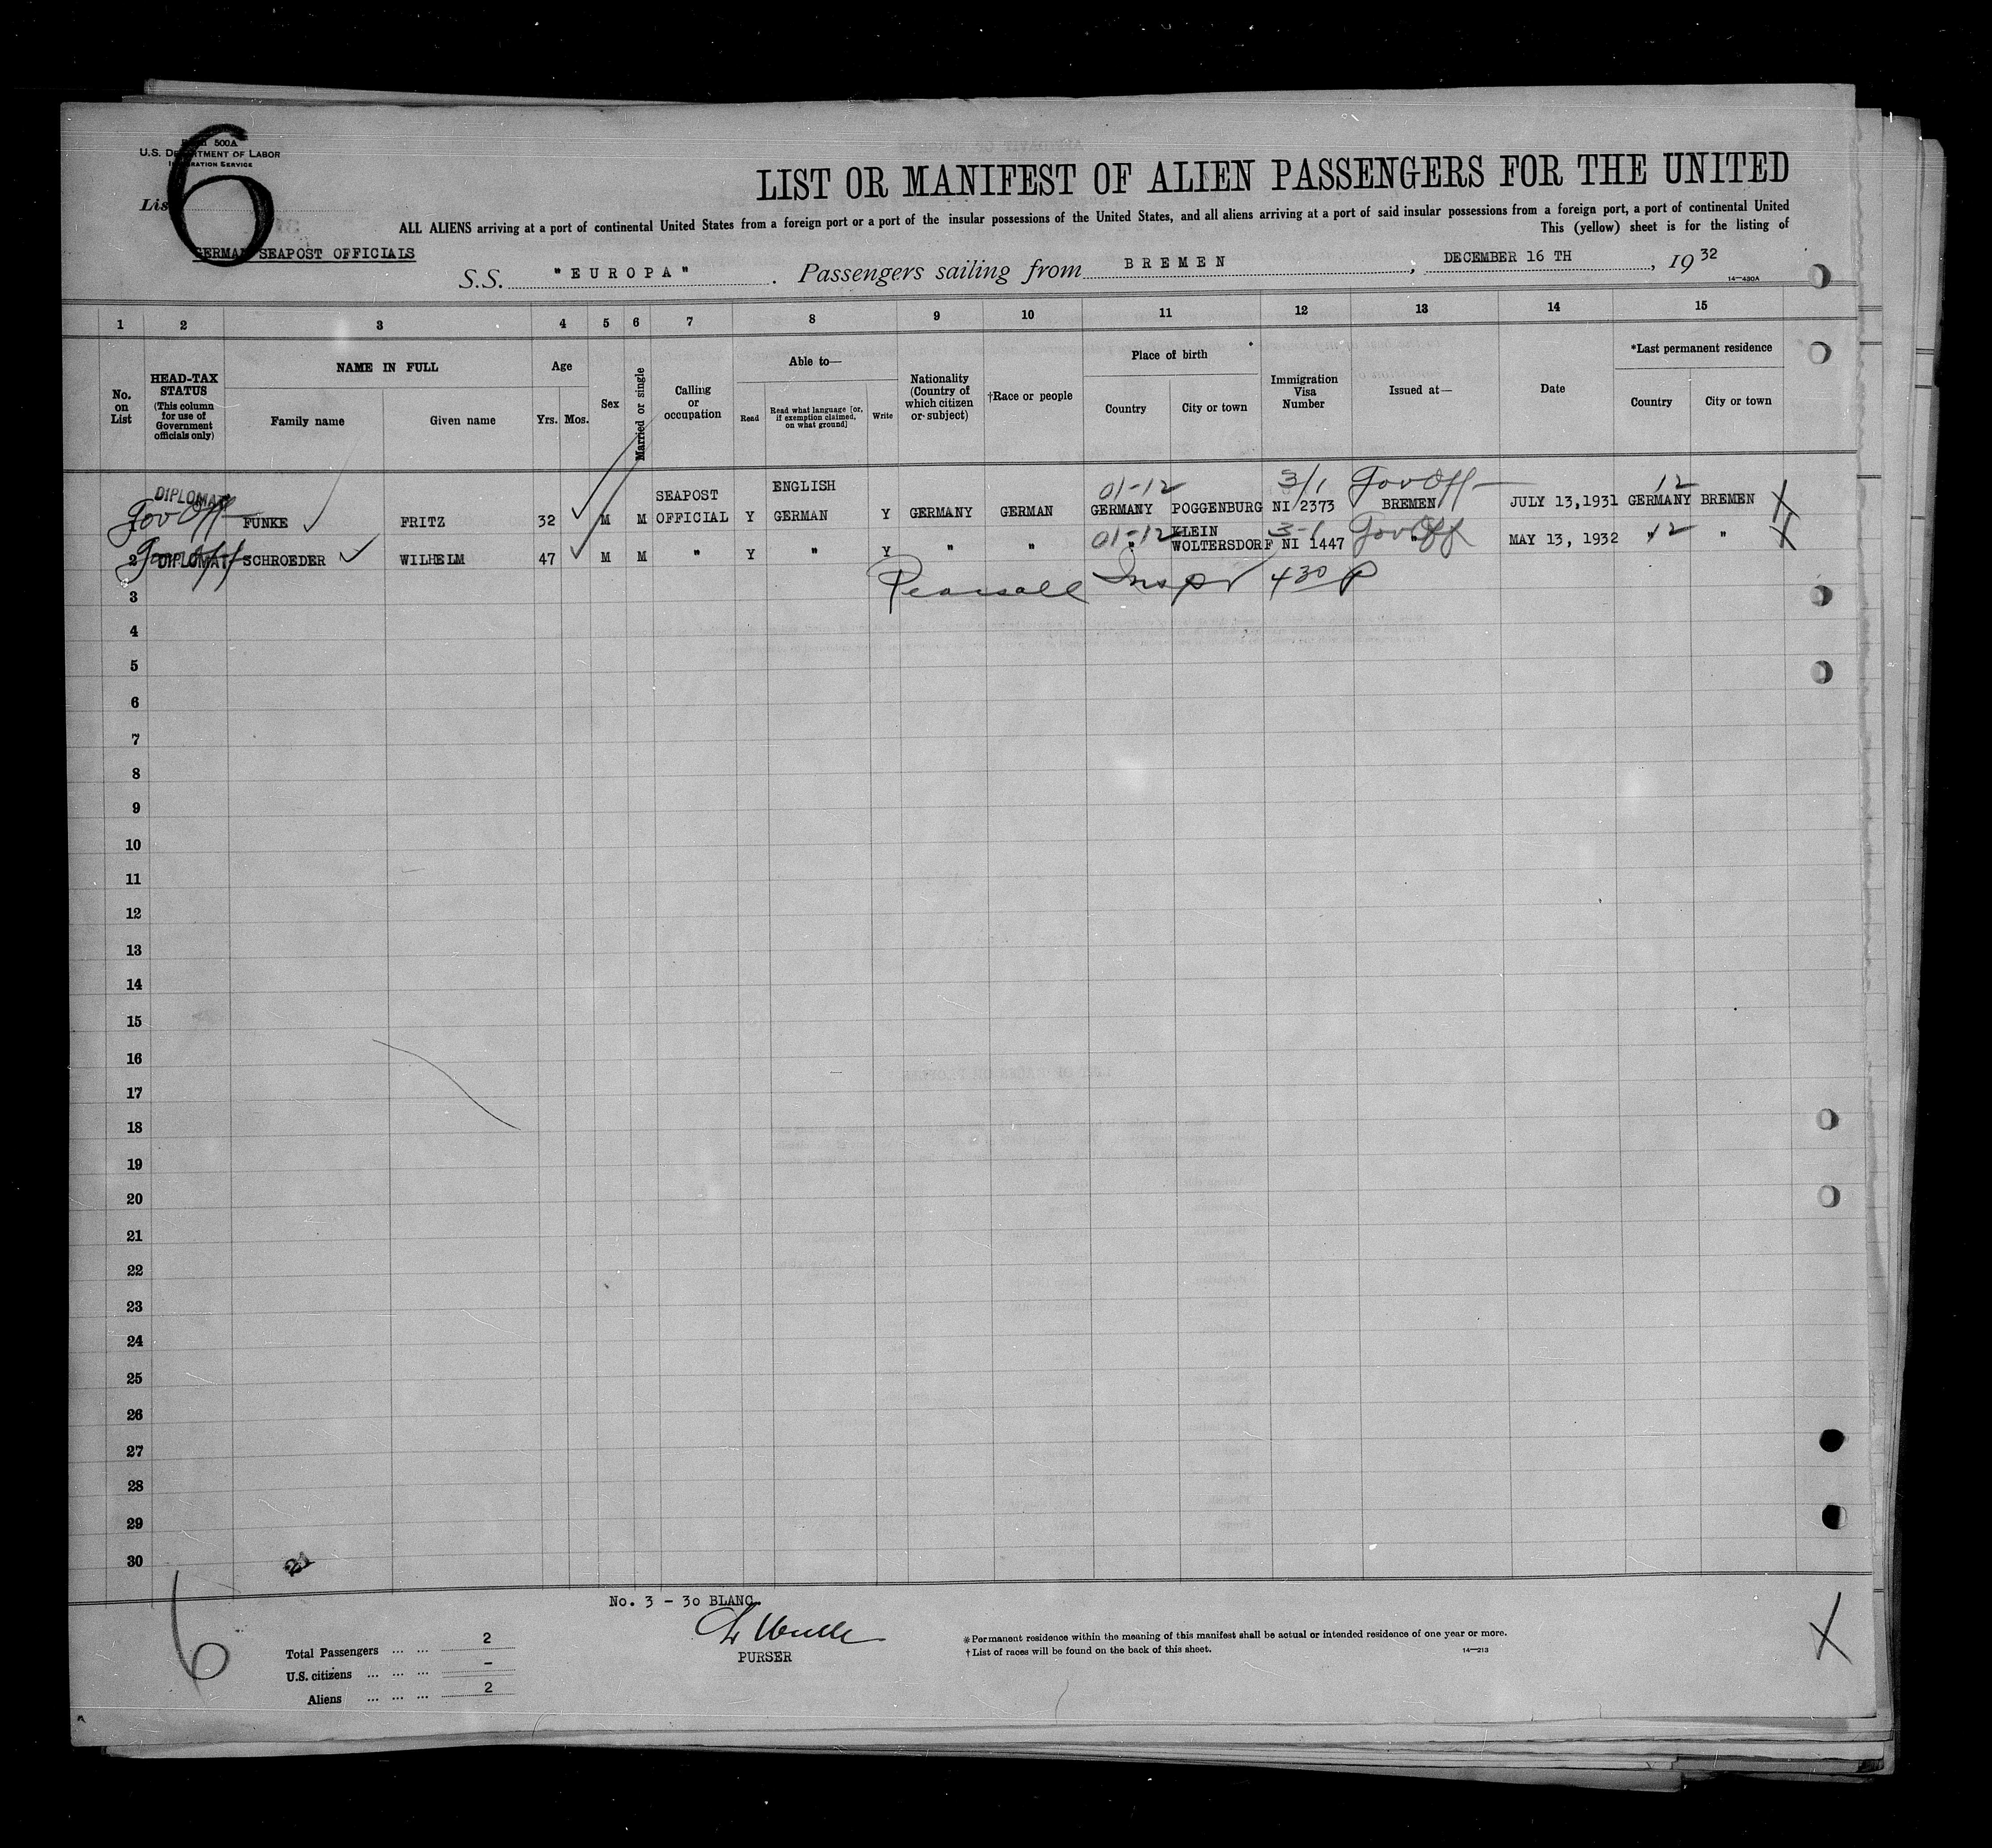 6
500A
U.S. DEPARTMENT OF LABOR
IMMIGRATION SERVICE
LIST OR MANIFEST OF ALIEN PASSENGERS FOR THE UNITED
ALL ALIENS arriving at a port of continental United States from a foreign port or a port of the insular possessions of the United States, and all aliens arriving at a port of said insular possessions from a foreign port, a port of continental United
This (yellow) sheet is for the listing of
GERMAN SEAPOST OFFICIALS
S.S. "EUROPA". Passengers sailing from BREMEN, DECEMBER 16 TH, 19 32
14—430A
1 2 3 4 5 6 7 8 9 10 11 12 13 14 15
No. on List
HEAD-TAX STATUS (This column for use of Government officials only)
NAME IN FULL
Family name
Given name
Age
Yrs. Mos.
Sex
Married or single
Calling or occupation
Able to—
Read
Read what language [or, if exemption claimed, on what ground]
Write
Nationality (Country of which citizen or subject)
†Race or people
Place of birth
Country
City or town
Immigration Visa Number
Issued at—
Date
*Last permanent residence
Country
City or town
DIPLOMAT SEAPOST ENGLISH 01-12 3/1 Gov Off 12
1 Gov Off FUNKE FRITZ 32 M M OFFICIAL Y GERMAN Y GERMANY GERMAN GERMANY POGGENBURG NI 2373 BREMEN JULY 13,1931 GERMANY BREMEN X
01-12 KLEIN 3-1 Gov Off 12
2 Gov Off DIPLOMAT SCHROEDER WILHELM 47 M M " Y " Y " " " WOLTERSDORF NI 1447 " MAY 13, 1932 " " X
3 Pearsall Inspr 430 P
4
5
6
7
8
9
10
11
12
13
14
15
16
17
18
19
20
21
22
23
24
25
26
27
28
29
30
No. 3 - 30 BLANC.
PURSER
Total Passengers ... ... 2
U.S. citizens ... ... ... –
Aliens ... ... ... 2
*Permanent residence within the meaning of this manifest shall be actual or intended residence of one year or more.
†List of races will be found on the back of this sheet.
14—213
6
X